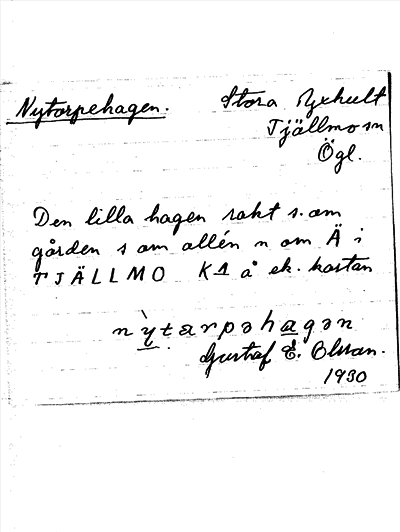 Nytorpehagen.
Stora Yxhult
Tjällmo sn
Ögl.
Den lilla hagen rakt s. om
gården s om allén n om Ä i
TJÄLLMO K1 å ek. kartan
nỳtarpəhagən
Gustaf E. Olsson.
1930